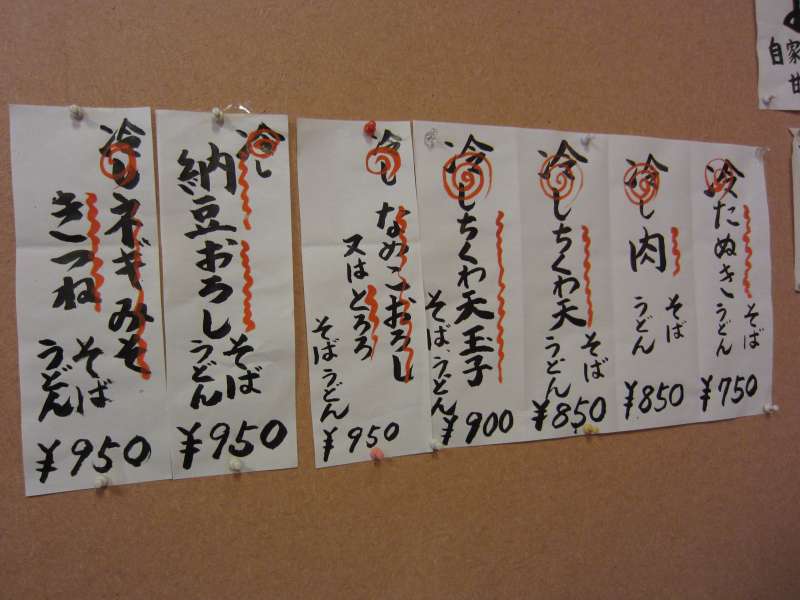 自家
冷たぬき
そば
うどん
¥750
冷し肉
そば
うどん
¥850
冷しちくわ天
そば
うどん
¥850
冷しちくわ天玉子
そば、うどん
¥900
冷しなめこおろし
又はとろろ
そばうどん
¥950
冷し
納豆おろし
そば
うどん
¥950
冷しネギみそ
きつね
そば
うどん
¥950